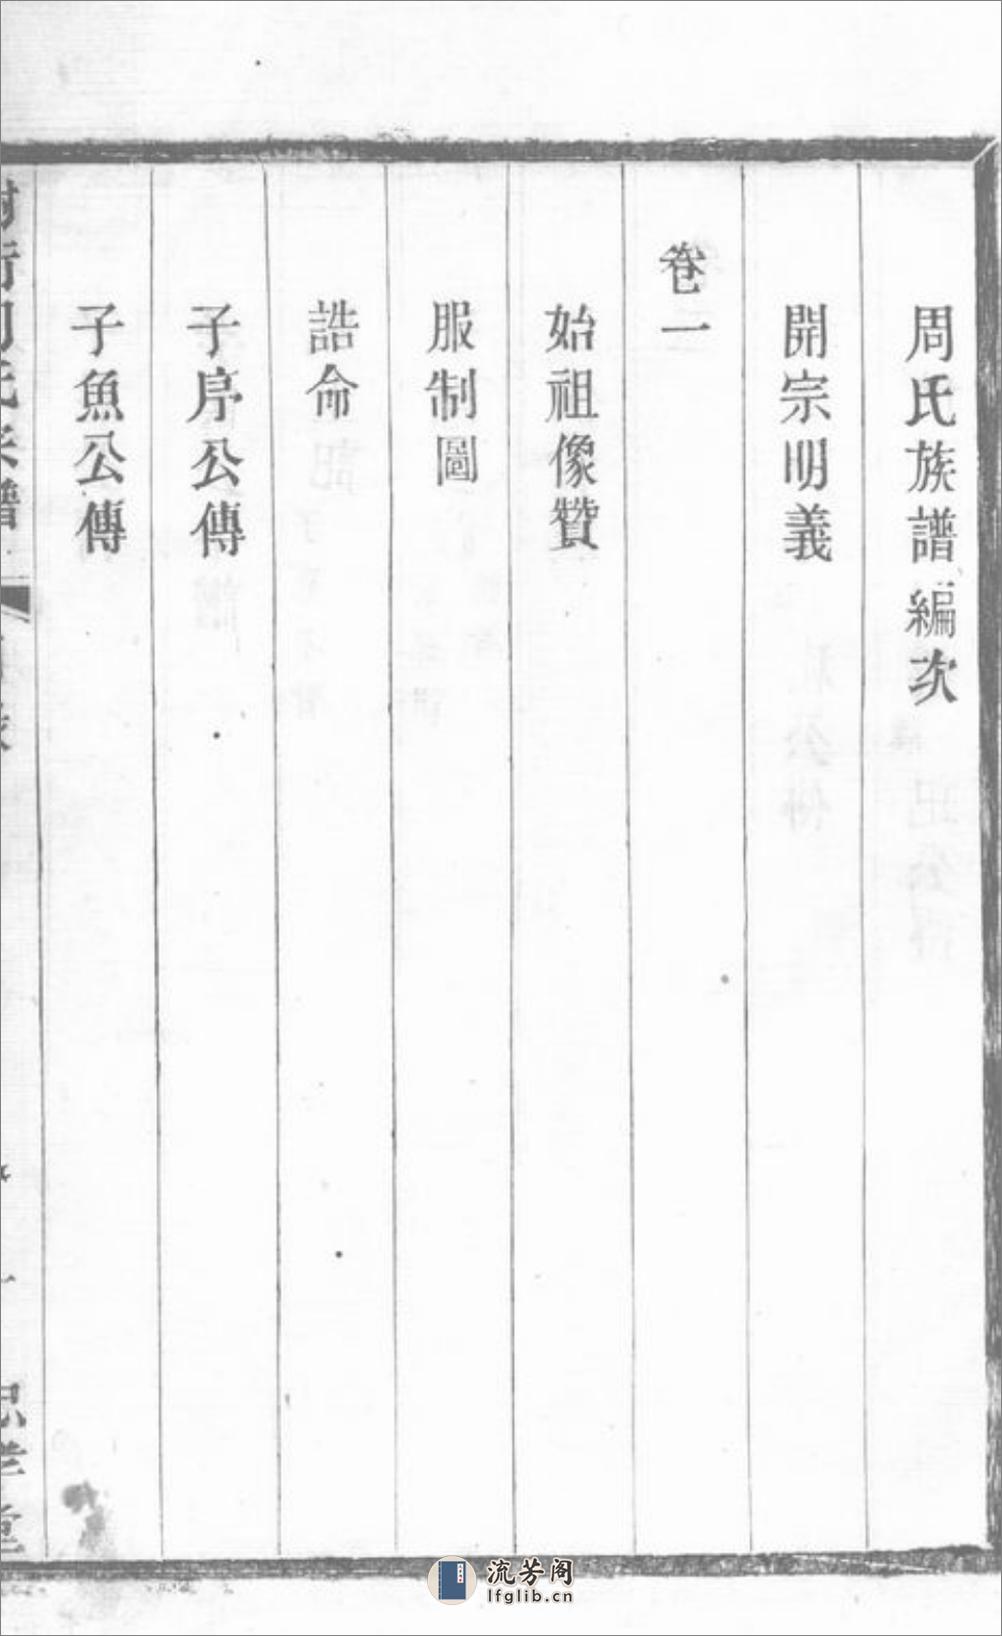 周氏族譜編次
開宗明義
卷一
始祖像贊
服制圖
誥命
子序公傳
子魚公傳
流芳阁
lfglib.cn